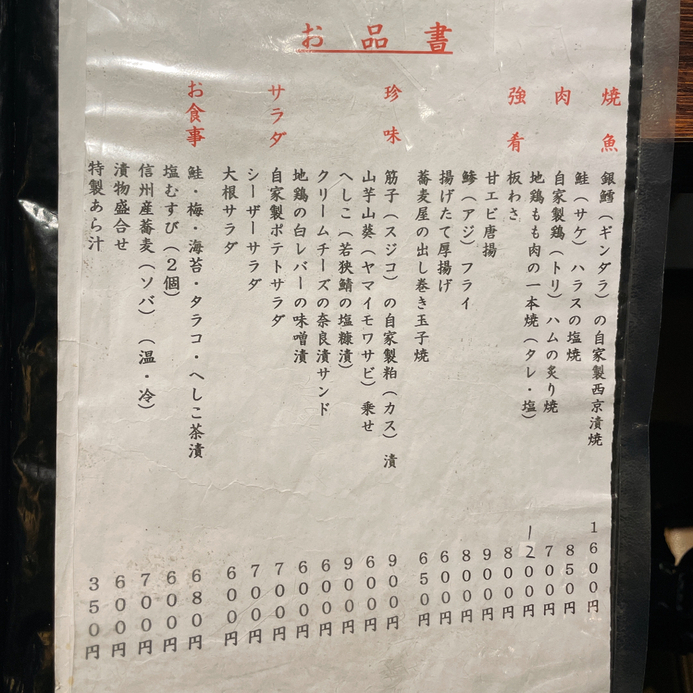 お品書
焼魚
銀鱈（ギンダラ）の自家製西京漬焼 1600円
鮭（サケ）ハラスの塩焼 850円
肉
自家製鶏（トリ）ハムの炙り焼 700円
地鶏もも肉の一本焼（タレ・塩） 1200円
強肴
板わさ 800円
甘エビ唐揚 900円
鯵（アジ）フライ 800円
揚げたて厚揚げ 600円
蕎麦屋の出し巻き玉子焼 650円
珍味
筋子（スジコ）の自家製粕（カス）漬 900円
山芋山葵（ヤマイモワサビ）乗せ 600円
へしこ（若狭鯖の塩糠漬） 900円
クリームチーズの奈良漬サンド 600円
地鶏の白レバーの味噌漬 600円
サラダ
自家製ポテトサラダ 700円
シーザーサラダ 700円
大根サラダ 600円
お食事
鮭・梅・海苔・タラコ・へしこ茶漬 680円
塩むすび（2個） 600円
信州産蕎麦（ソバ）（温・冷） 700円
漬物盛合せ 600円
特製あら汁 350円